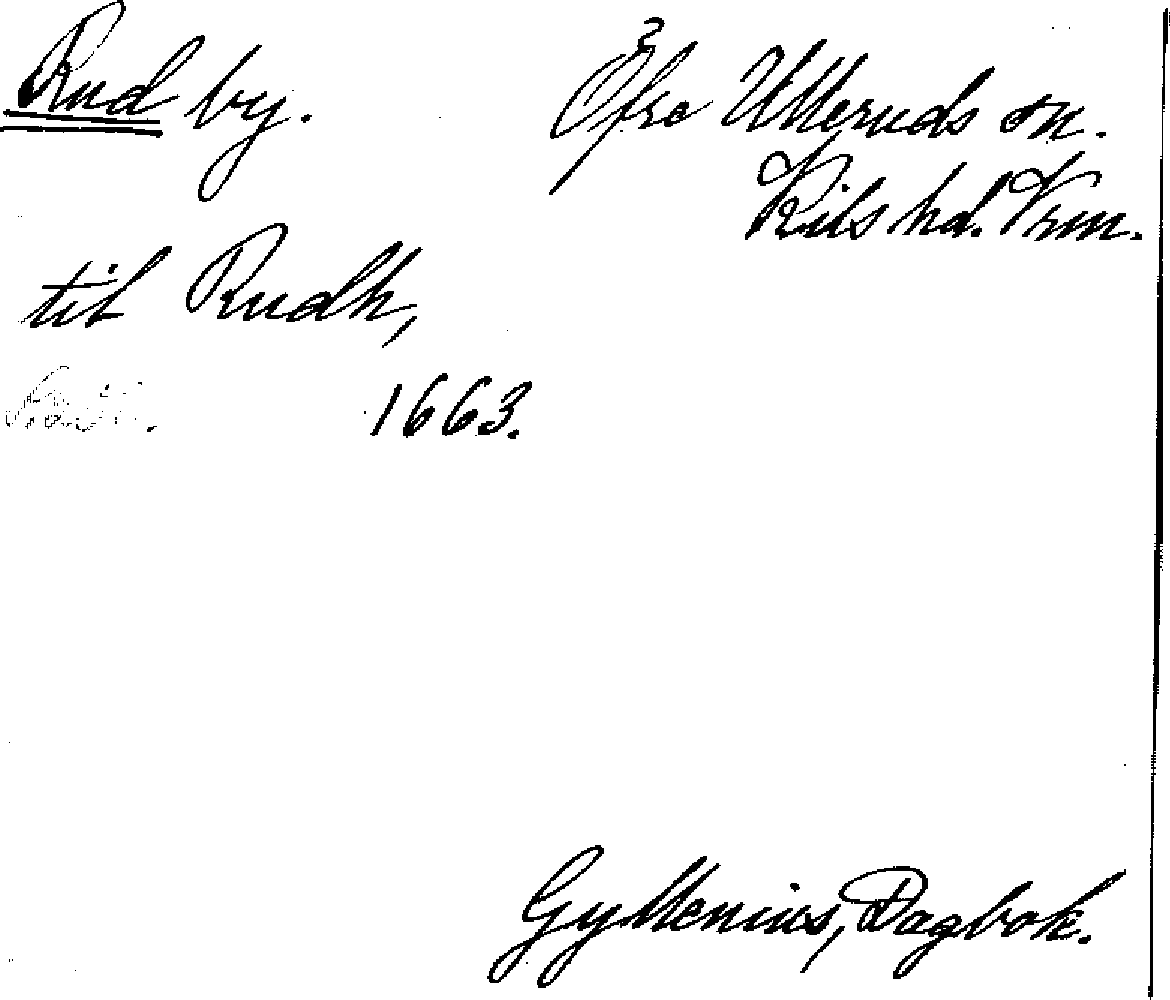 Rud by. Öfre Ulleruds sn.
Kils hd. Vrm.
til Rudh,
1663.
Gyllenius, Dagbok.